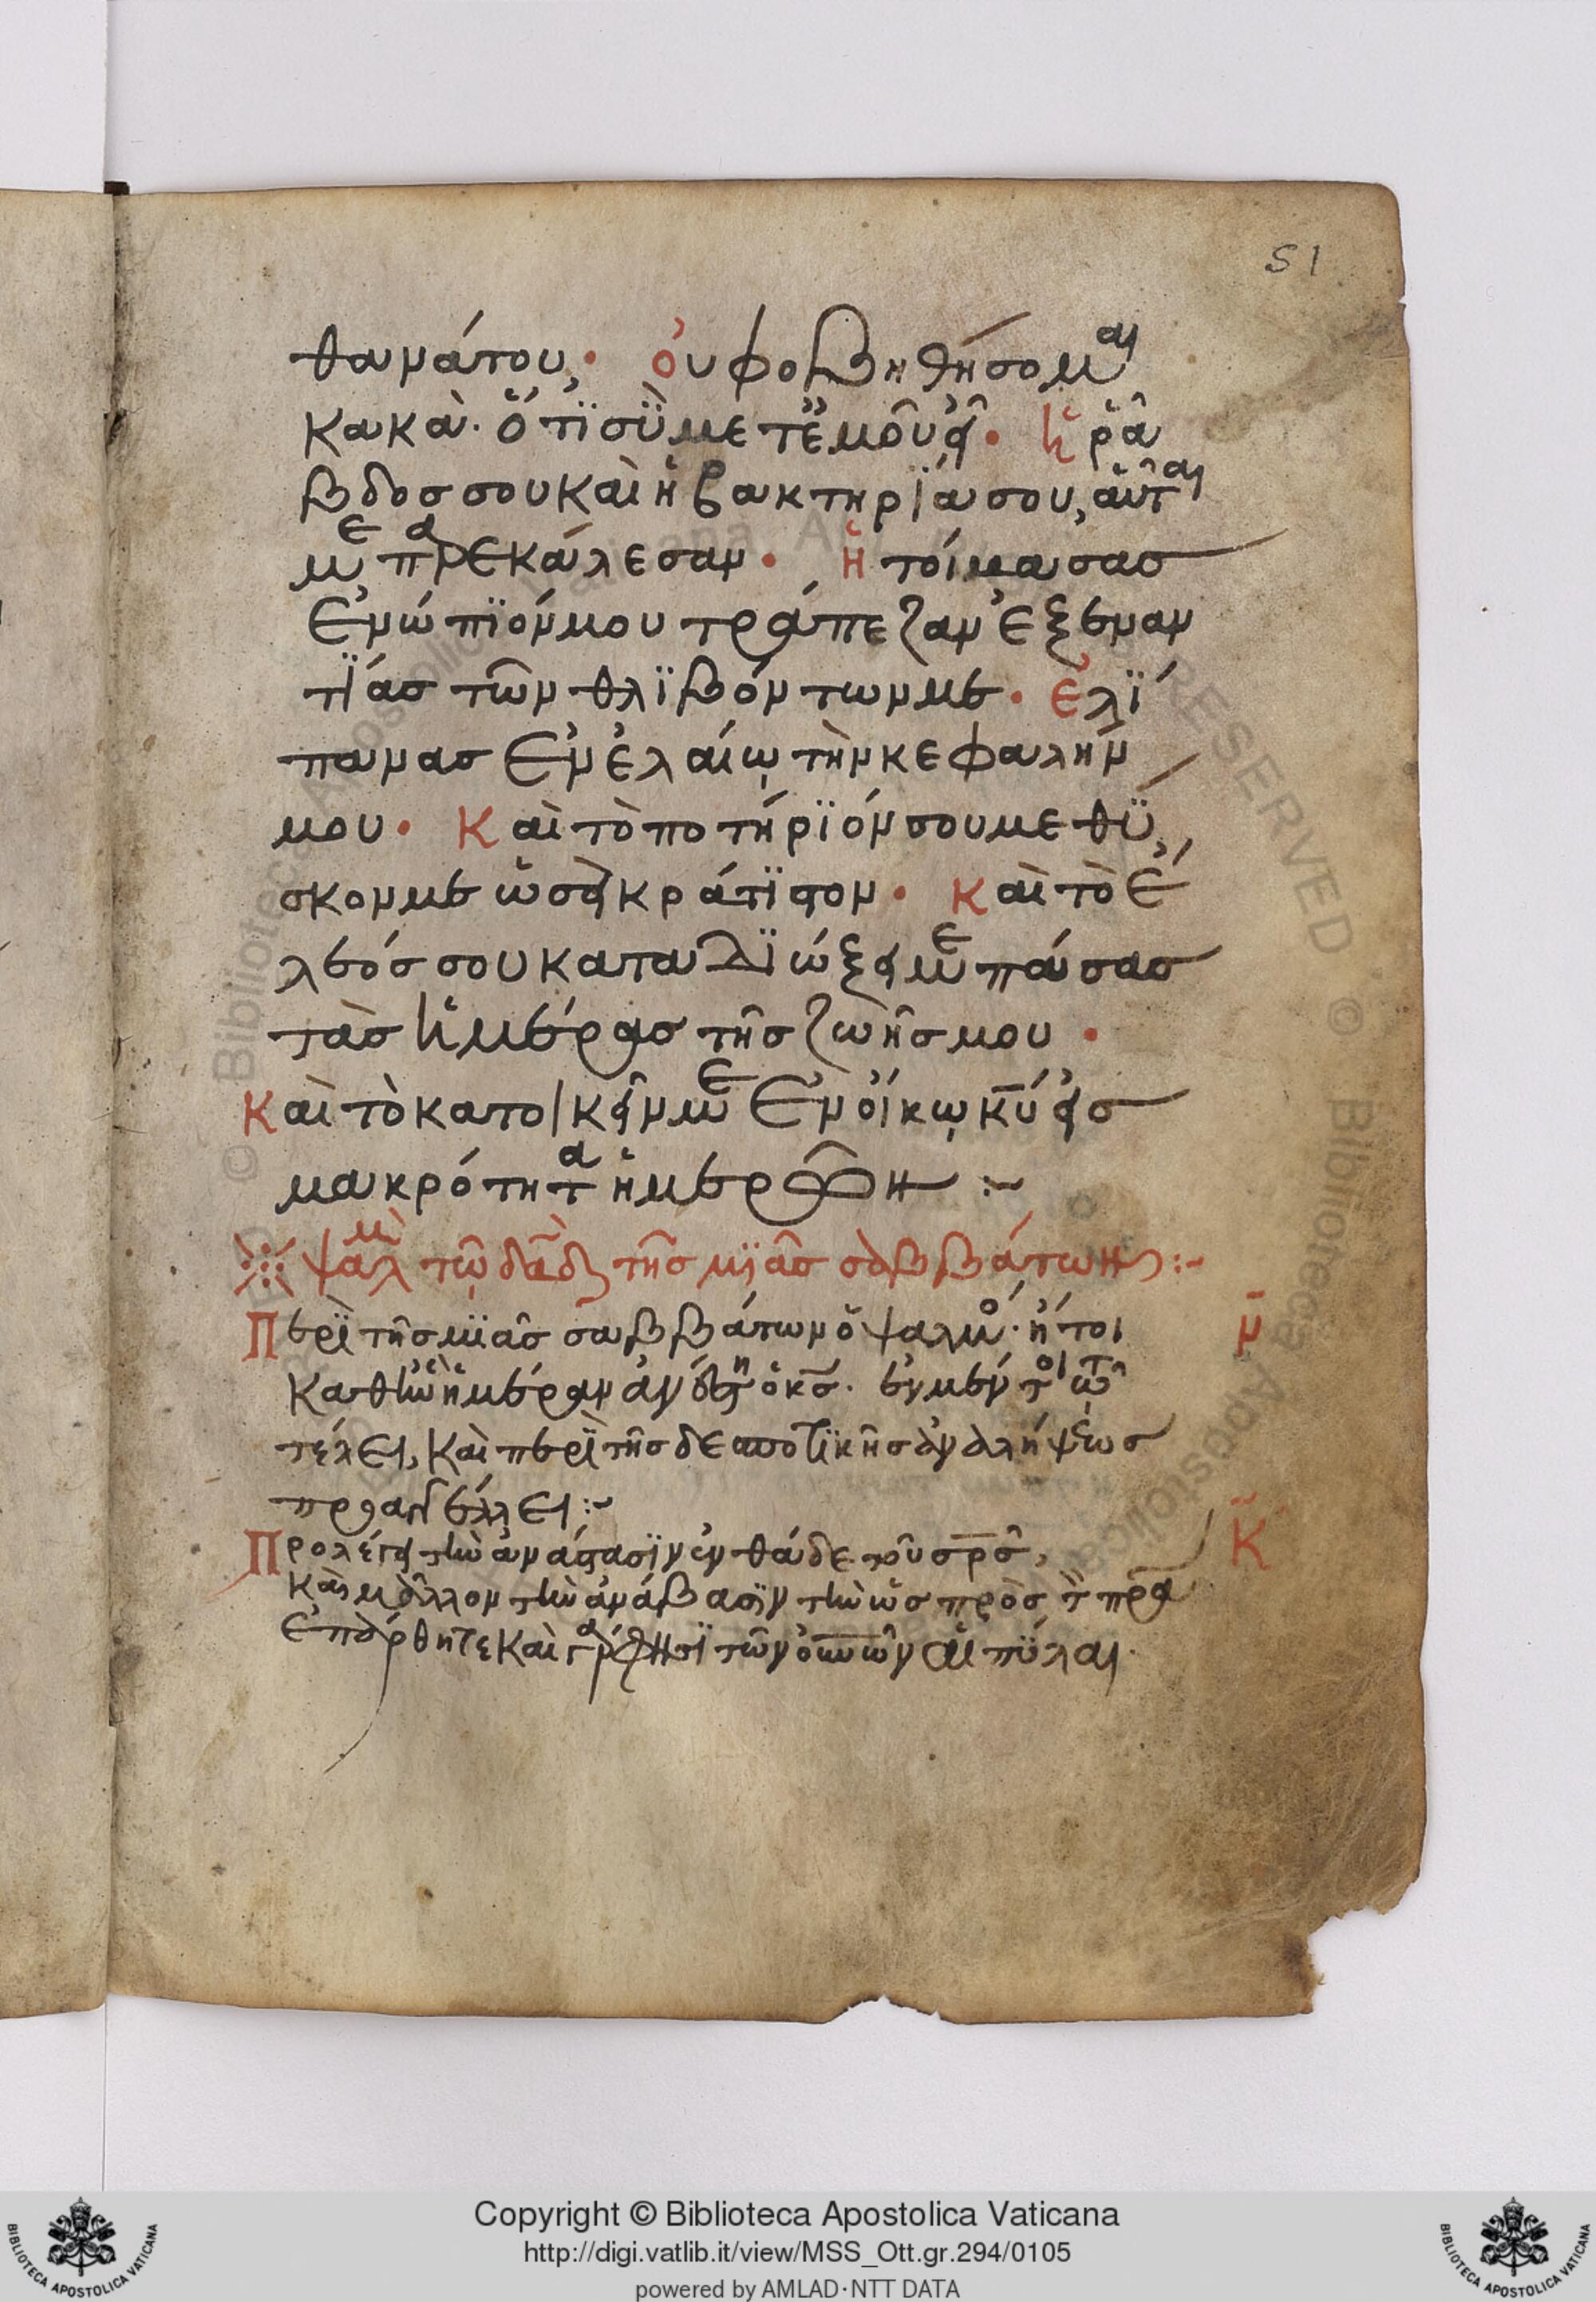 51
θανάτου, οὐ φοβηθήσομαι
κακά· ὅτι σὺ μετ ἐμοῦ εἶ· ἡ ρά
βδος σου καὶ ἡ βακτηρία σου, αὗται
με παρεκάλεσαν· ἡτοίμασας
ἐνώπιόν μου τράπεζαν ἐξεναν
τίας τῶν θλιβόντων με· ἐλί
πανας ἐν ἐλαίῳ τὴν κεφαλήν
μου· Καὶ τὸ ποτήριόν σου μεθύ
σκον με ὡσεὶ κράτιστον· καὶ τὸ ἔ
λεός σου καταδιώξει με πάσας
τὰς ἡμέρας τῆς ζωῆς μου·
Καὶ τὸ κατοικεῖν με ἐν οἴκῳ κ̅υ̅ εἰς
μακρότητα ἡμερῶν :~
ψαλμ τῷ δα̅δ̅ τῆς μιᾶς σαββάτων :~
Περὶ τῆς μιᾶς σαββάτων ὁ ψαλμὸ· ἤτοι
ν̅
καθ ἣν ἡμέραν ἀνέστη ὁ κ̅ς̅·
τέλει, καὶ περὶ τῆς δεσποτικῆς ἀναλήψεως
παραγγέλλει :~
Προλέγει τὴν ἀνάστασιν ἐνθάδε τοῦ σ̅ρ̅ς̅,
κ̅
καὶ μᾶλλον τὴν ἀνάβασιν τὴν ὡς πρὸς τὸν π̅ρ̅α̅
ἐπάρθητε καὶ γάρ φησι τῶν ο̅υ̅ν̅ω̅ν αἱ πύλαι·
Copyright © Biblioteca Apostolica Vaticana
http://digi.vatlib.it/view/MSS_Ott.gr.294/0105
powered by AMLAD·NTT DATA
BIBLIOTECA APOSTOLICA VATICANA
BIBLIOTECA APOSTOLICA VATICANA